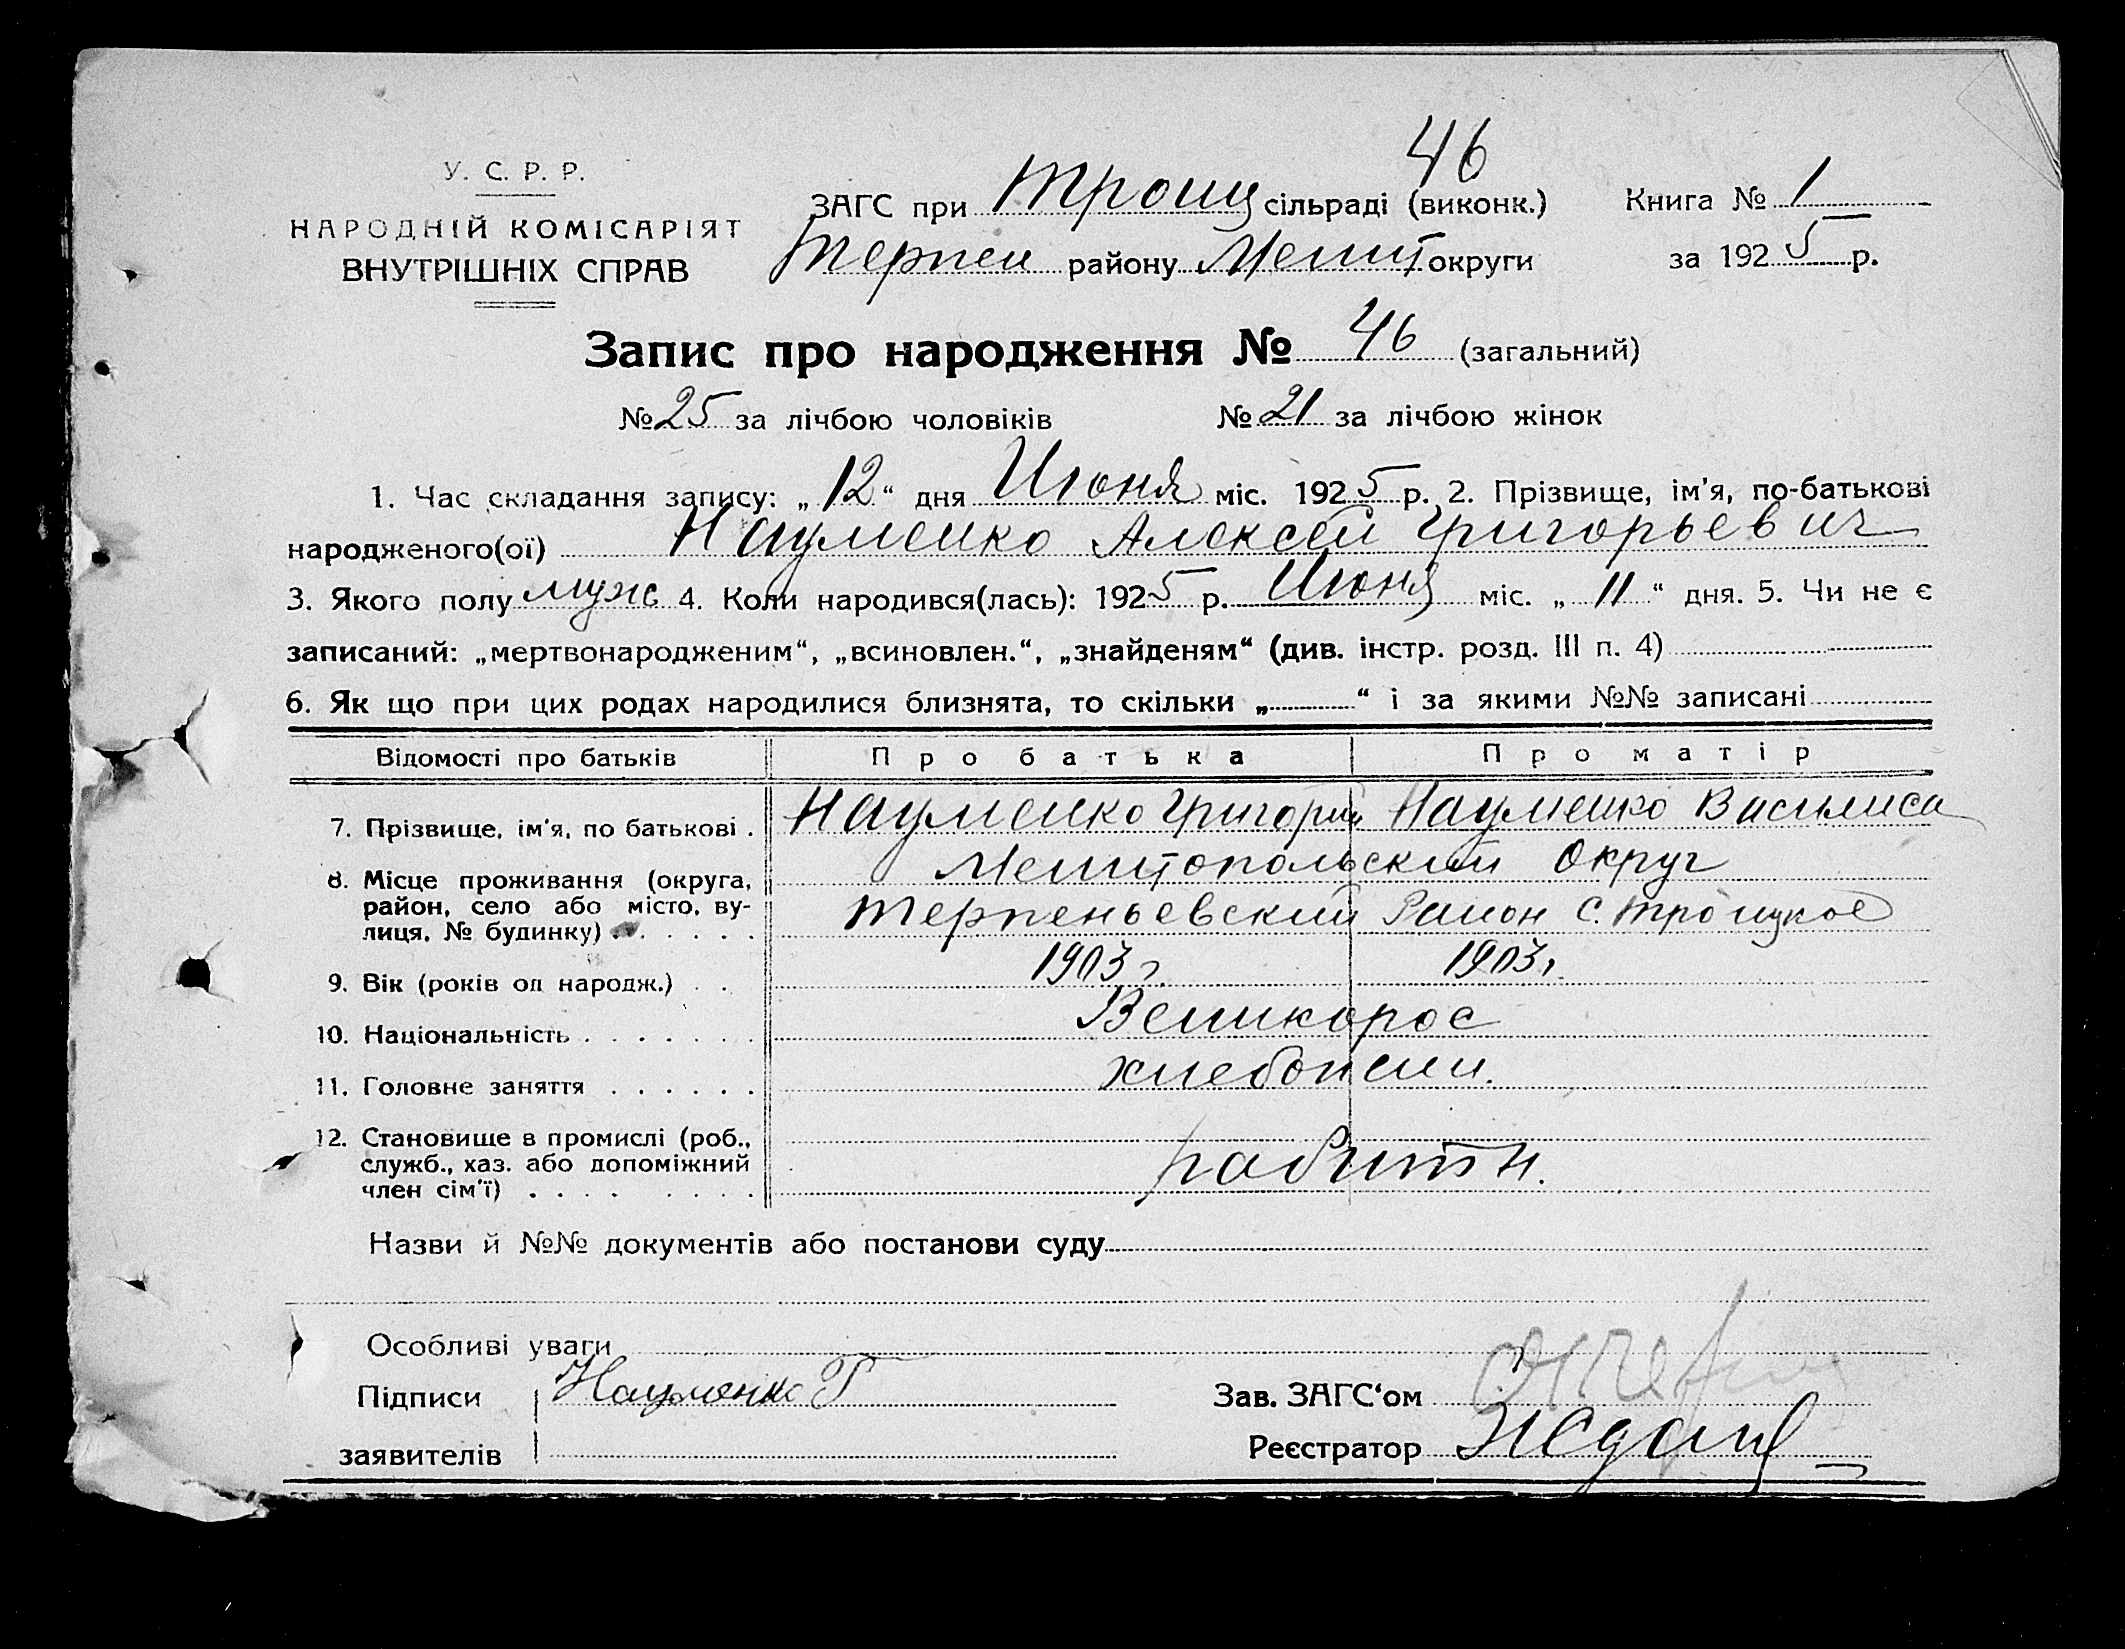 46
У. С. Р. Р.
НАРОДНІЙ КОМІСАРІЯТ
ВНУТРІШНІХ СПРАВ
ЗАГС при Троиц сільраді (виконк.)
Терпен району Мелит округи
Книга № 1
за 1925 р.
Запис про народження № 46 (загальний)
№ 25 за лічбою чоловіків № 21 за лічбою жінок
1. Час складання запису: „12“ дня Июня міс. 1925 р. 2. Прізвище, ім'я, по-батькові
народженого(ої) Науменко Алексей Григорьевич
3. Якого полу муж 4. Коли народився(лась): 1925 р. Июня міс. „11“ дня. 5. Чи не є
записаний: „мертвонародженим“, „всиновлен.“, „знайденям“ (див. інстр. розд. III п. 4)
6. Як що при цих родах народилися близнята, то скільки „ “ і за якими №№ записані
Відомості про батьків Про батька Про матір
7. Прізвище, ім'я, по батькові . Науменко Григорий Науменко Василиса
8. Місце проживання (округа, Мелитопольский Округ
район, село або місто, ву-
лиця, № будинку) . . . . . . Терпеньевский Район с. Троицкое
9. Вік (років од народж.) . . 1903 г. 1903 г.
10. Національність . . . . . . . Великорос
11. Головне заняття . . . . . . хлебопаш.
12. Становище в промислі (роб.,
служб., хаз. або допоміжний
член сім'ї) . . . . . . . .
Назви й №№ документів або постанови суду
Особливі уваги
Підписи Науменко Г
заявителів
Зав. ЗАГС‘ом
Реєстратор